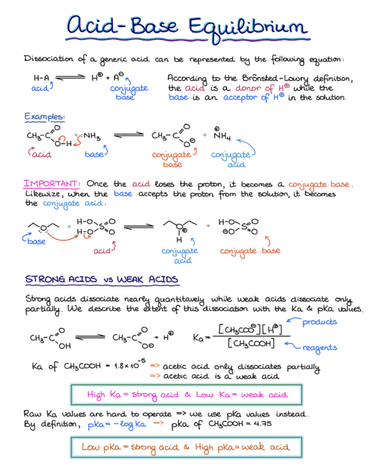 Acid-Base Equilibrium
Dissociation of a generic acid can be represented by the following equation:
H-A ⇌ H⊕ + A⊖
acid
conjugate base
According to the Brönsted-Lowry definition,
the acid is a donor of H⊕ while the
base is an acceptor of H⊕ in the solution.
Examples:
CH₃-C O O-H + :NH₃ ⇌ CH₃-C O O⊖ + ⊕NH₄
acid
base
conjugate base
conjugate acid
IMPORTANT: Once the acid loses the proton, it becomes a conjugate base.
Likewize, when the base accepts the proton from the solution, it becomes
the conjugate acid.
O + H-O H-O S O O ⇌ O⊕ H + H-O ⊖O S O O
base
acid
conjugate acid
conjugate base
STRONG ACIDS vs WEAK ACIDS
Strong acids dissociate nearly quantitavely while weak acids dissociate only
partially. We describe the extent of this dissociation with the Ka & pKa values.
CH₃-C O OH ⇌ CH₃-C O O⊖ + H⊕
Ka = [CH₃COO⊖][H⊕] / [CH₃COOH]
products
reagents
Ka of CH₃COOH = 1.8×10⁻⁵ => acetic acid only dissociates partially
=> acetic acid is a weak acid
High Ka = strong acid & Low Ka = weak acid
Raw Ka values are hard to operate => we use pKa values instead.
By definition, pKa = -log Ka => pKa of CH₃COOH = 4.75
Low pKa = strong acid & High pKa = weak acid